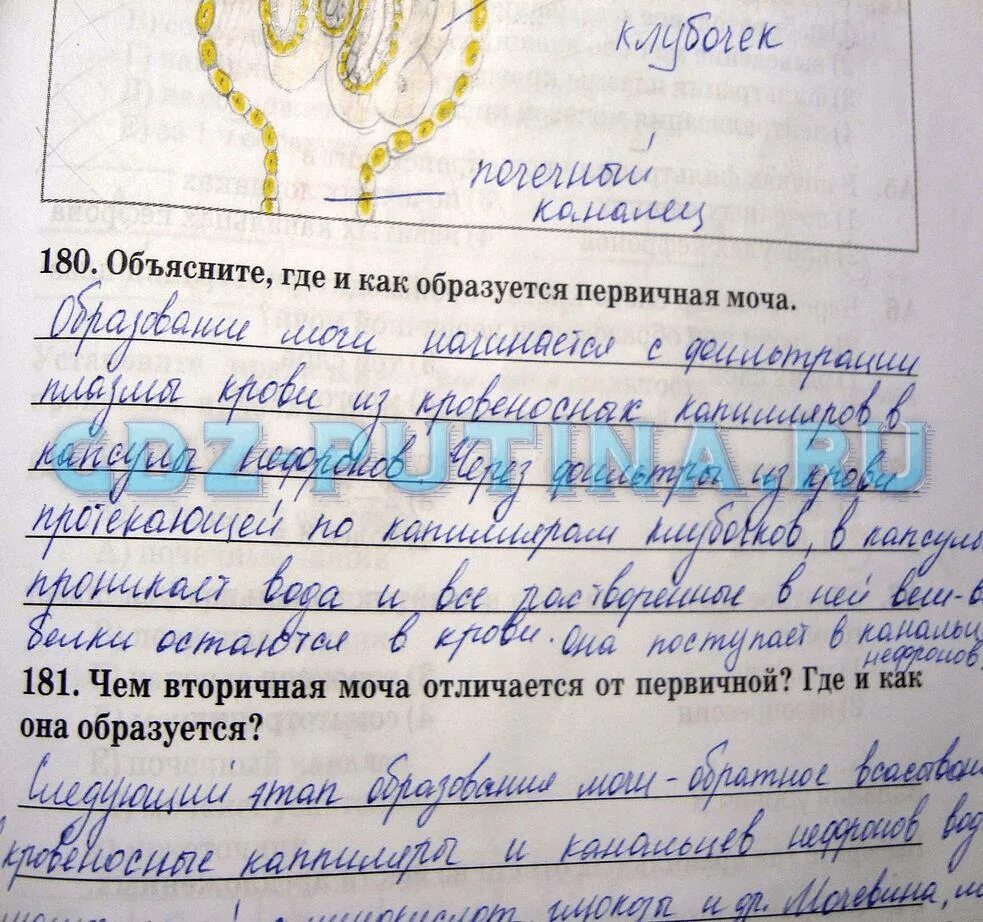 клубочек
почечный
каналец
180. Объясните, где и как образуется первичная моча.
Образовани мочи начинается с фильтрации
плазмы крови из кровеносных капилляров в
капсулы нефронов. Через фильтры из крови
GDZ PUTINA.RU
протекающей по капиллярам клубочков, в капсулы
проникает вода и все растворенные в ней вещ-в
белки остаются в крови. Она поступает в канальц
нефронов
181. Чем вторичная моча отличается от первичной? Где и как
она образуется?
Следующий этап образования мочи - обратное всасыван
кровеносные каппиляры и канальцев нефронов вод
глюкозы и др. Мочевина, м